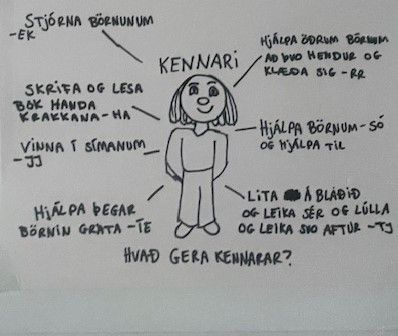 STJÓRNA BÖRNUNUM
-EK
KENNARI
HJÁLPA ÖÐRUM BÖRNUM
AÐ ÞVO HENDUR OG
KLÆÐA SIG -RR
SKRIFA OG LESA
BÓK HANDA
KRAKKANA-HA
HJÁLPA BÖRNUM-SÓ
OG HJÁLPA TIL
VINNA Í SÍMANUM
-JJ
HJÁLPA ÞEGAR
BÖRNIN GRÁTA -TE
LITA Á BLAÐIÐ
OG LEIKA SÉR OG LÚLLA
OG LEIKA SVO AFTUR -TJ
HVAÐ GERA KENNARAR?